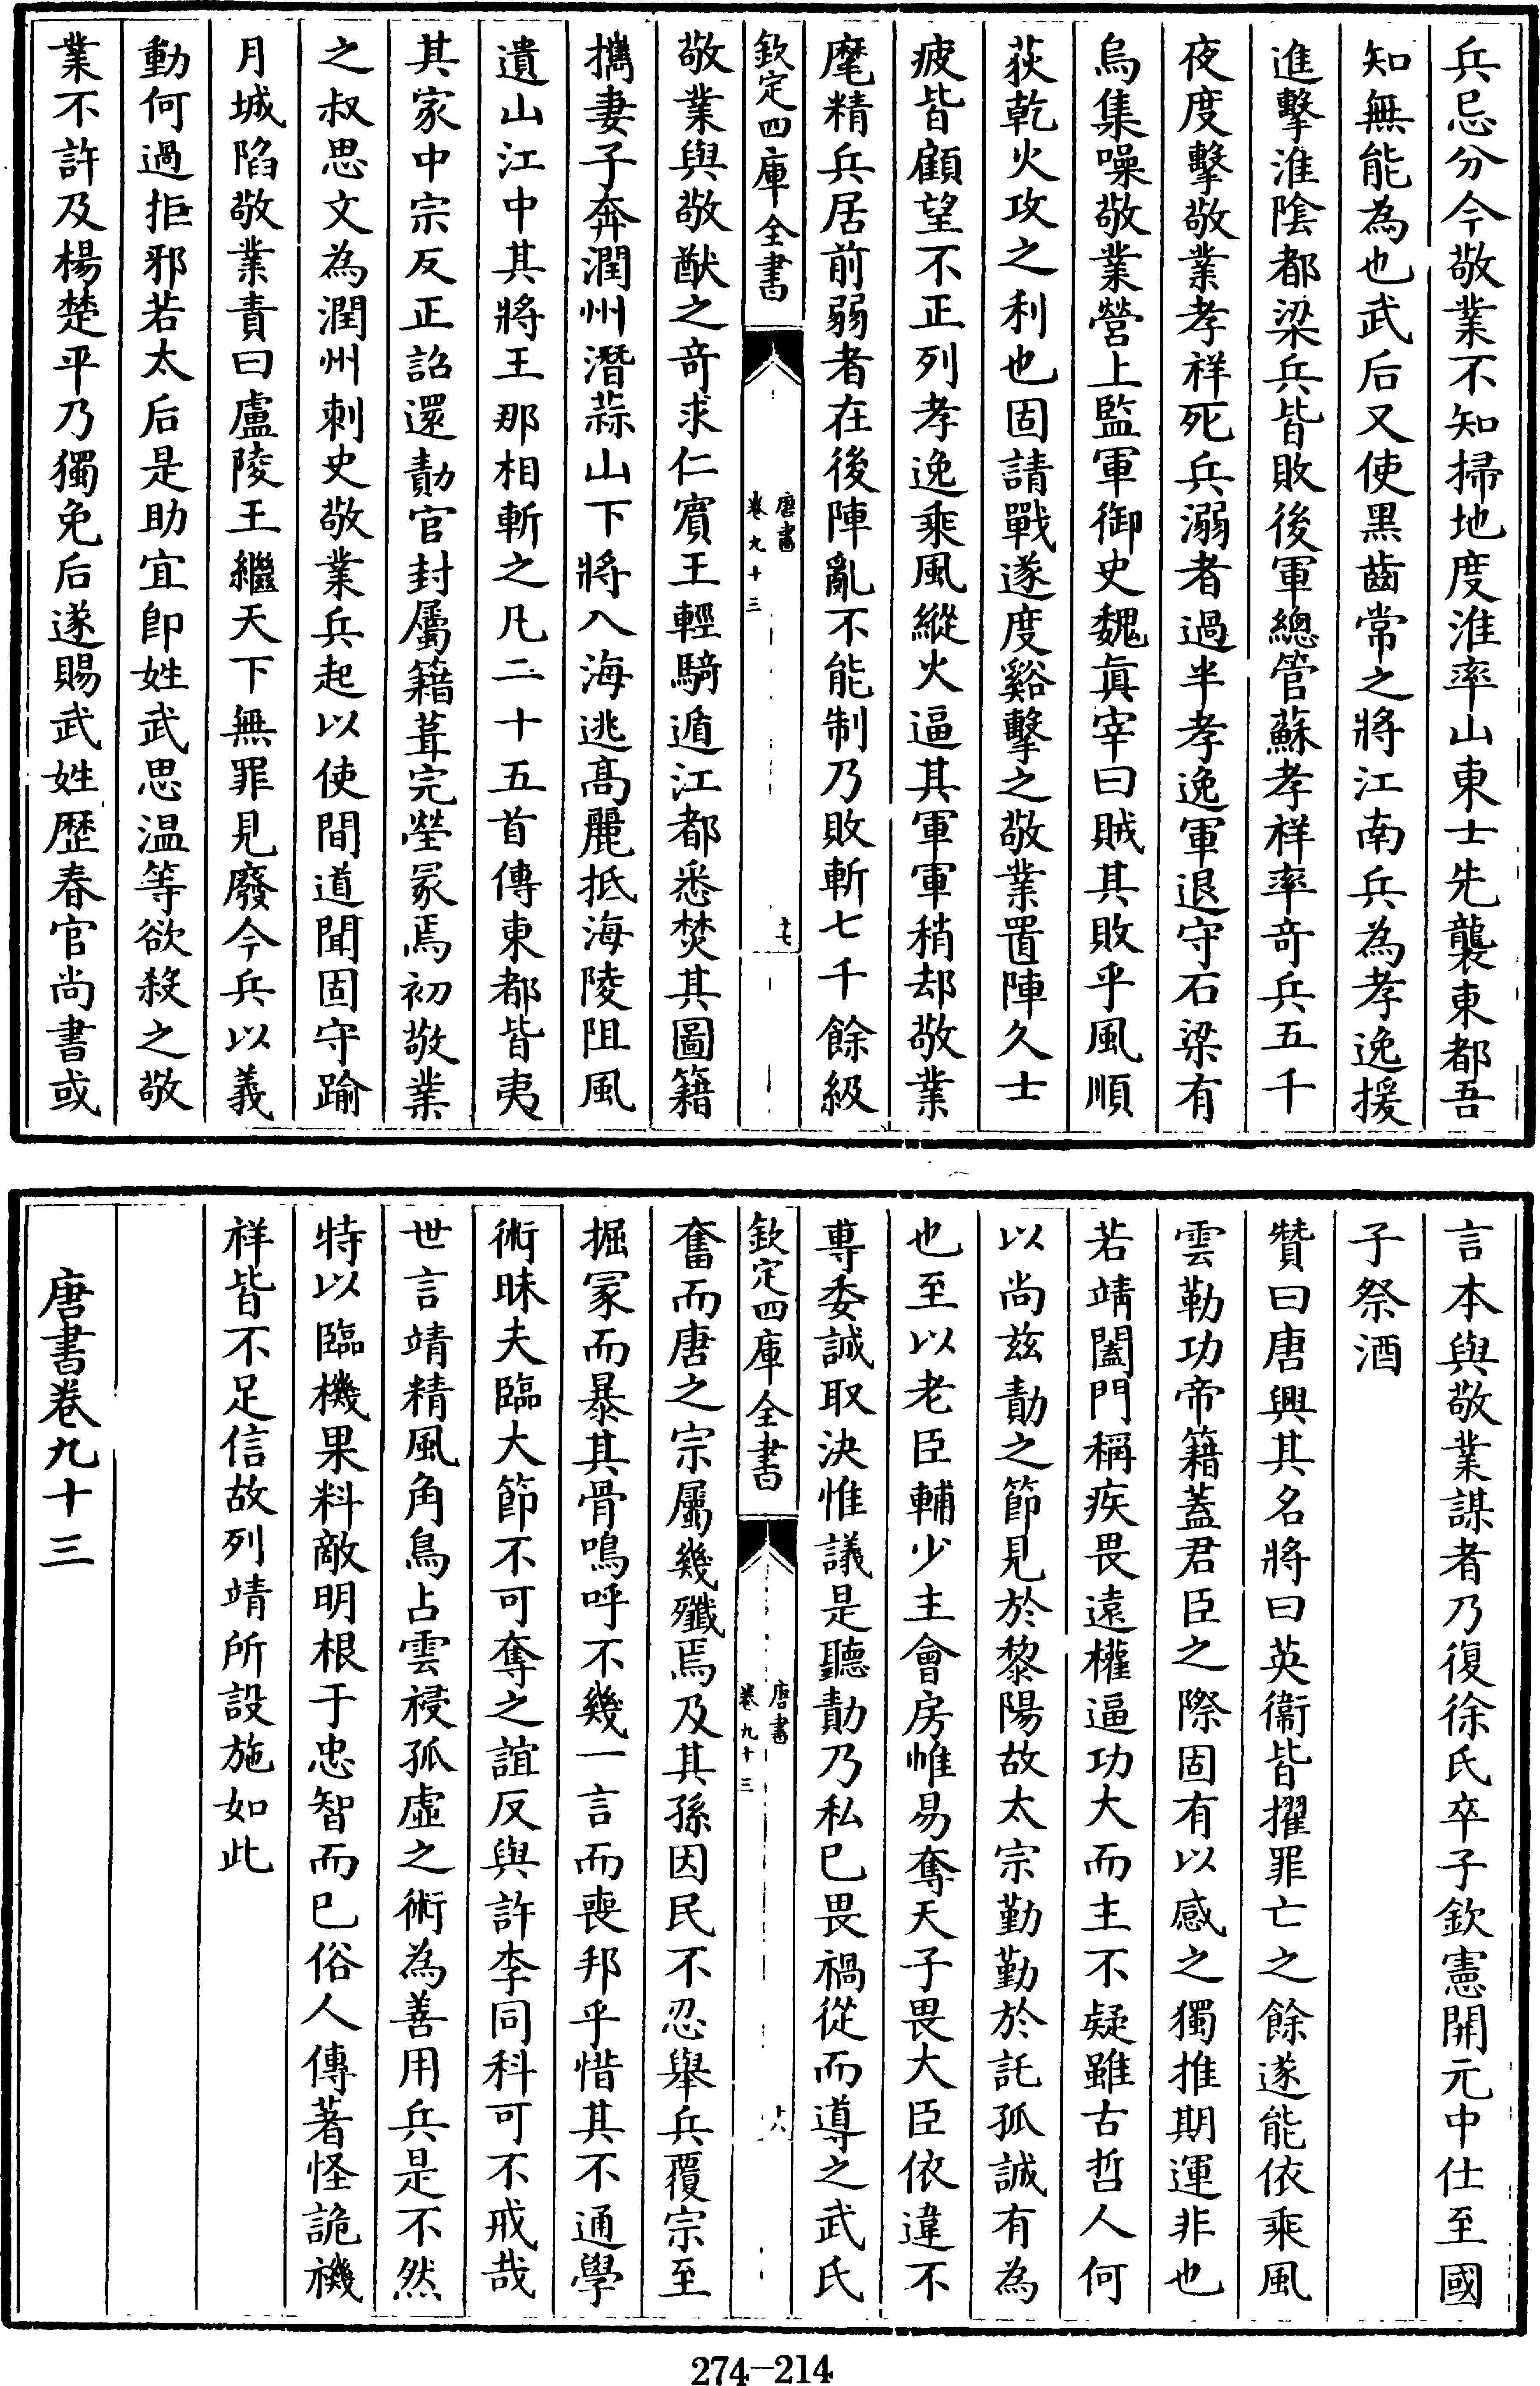 兵忌分今敬業不知掃地度淮率山東士先襲東都吾
知無能為也武后又使黑齒常之將江南兵為孝逸援
進擊淮陰都梁兵皆敗後軍總管蘇孝祥率奇兵五千
夜度擊敬業孝祥死兵溺者過半孝逸軍退守石梁有
烏集噪敬業營上監軍御史魏真宰曰賊其敗乎風順
荻乾火攻之利也固請戰遂度谿擊之敬業置陣久士
疲皆顧望不正列孝逸乘風縱火逼其軍軍稍却敬業
麾精兵居前弱者在後陣亂不能制乃敗斬七千餘級
欽定四庫全書
唐書
卷九十三
十七
敬業與敬猷之奇求仁賓王輕騎遁江都悉焚其圖籍
攜妻子奔潤州潛蒜山下將入海逃高麗抵海陵阻風
遺山江中其將王那相斬之凡二十五首傳東都皆夷
其家中宗反正詔還勣官封屬籍葺完塋冢焉初敬業
之叔思文為潤州刺史敬業兵起以使間道聞固守踰
月城陷敬業責曰盧陵王繼天下無罪見廢今兵以義
動何過拒邪若太后是助宜即姓武思溫等欲殺之敬
業不許及楊楚平乃獨免后遂賜武姓歷春官尚書或
言本與敬業謀者乃復徐氏卒子欽憲開元中仕至國
子祭酒
贊曰唐興其名將曰英衞皆擢罪亡之餘遂能依乘風
雲勒功帝籍蓋君臣之際固有以感之獨推期運非也
若靖闔門稱疾畏遠權逼功大而主不疑雖古哲人何
以尚茲勣之節見於黎陽故太宗勤勤於託孤誠有為
也至以老臣輔少主會房帷易奪天子畏大臣依違不
專委誠取決惟議是聽勣乃私已畏禍從而導之武氏
欽定四庫全書
唐書
卷九十三
十八
奮而唐之宗屬幾殲焉及其孫因民不忍舉兵覆宗至
掘冢而暴其骨嗚呼不幾一言而喪邦乎惜其不通學
術昧夫臨大節不可奪之誼反與許李同科可不戒哉
世言靖精風角鳥占雲祲孤虛之術為善用兵是不然
特以臨機果料敵明根于忠智而已俗人傳著怪詭禨
祥皆不足信故列靖所設施如此
唐書卷九十三
274-214